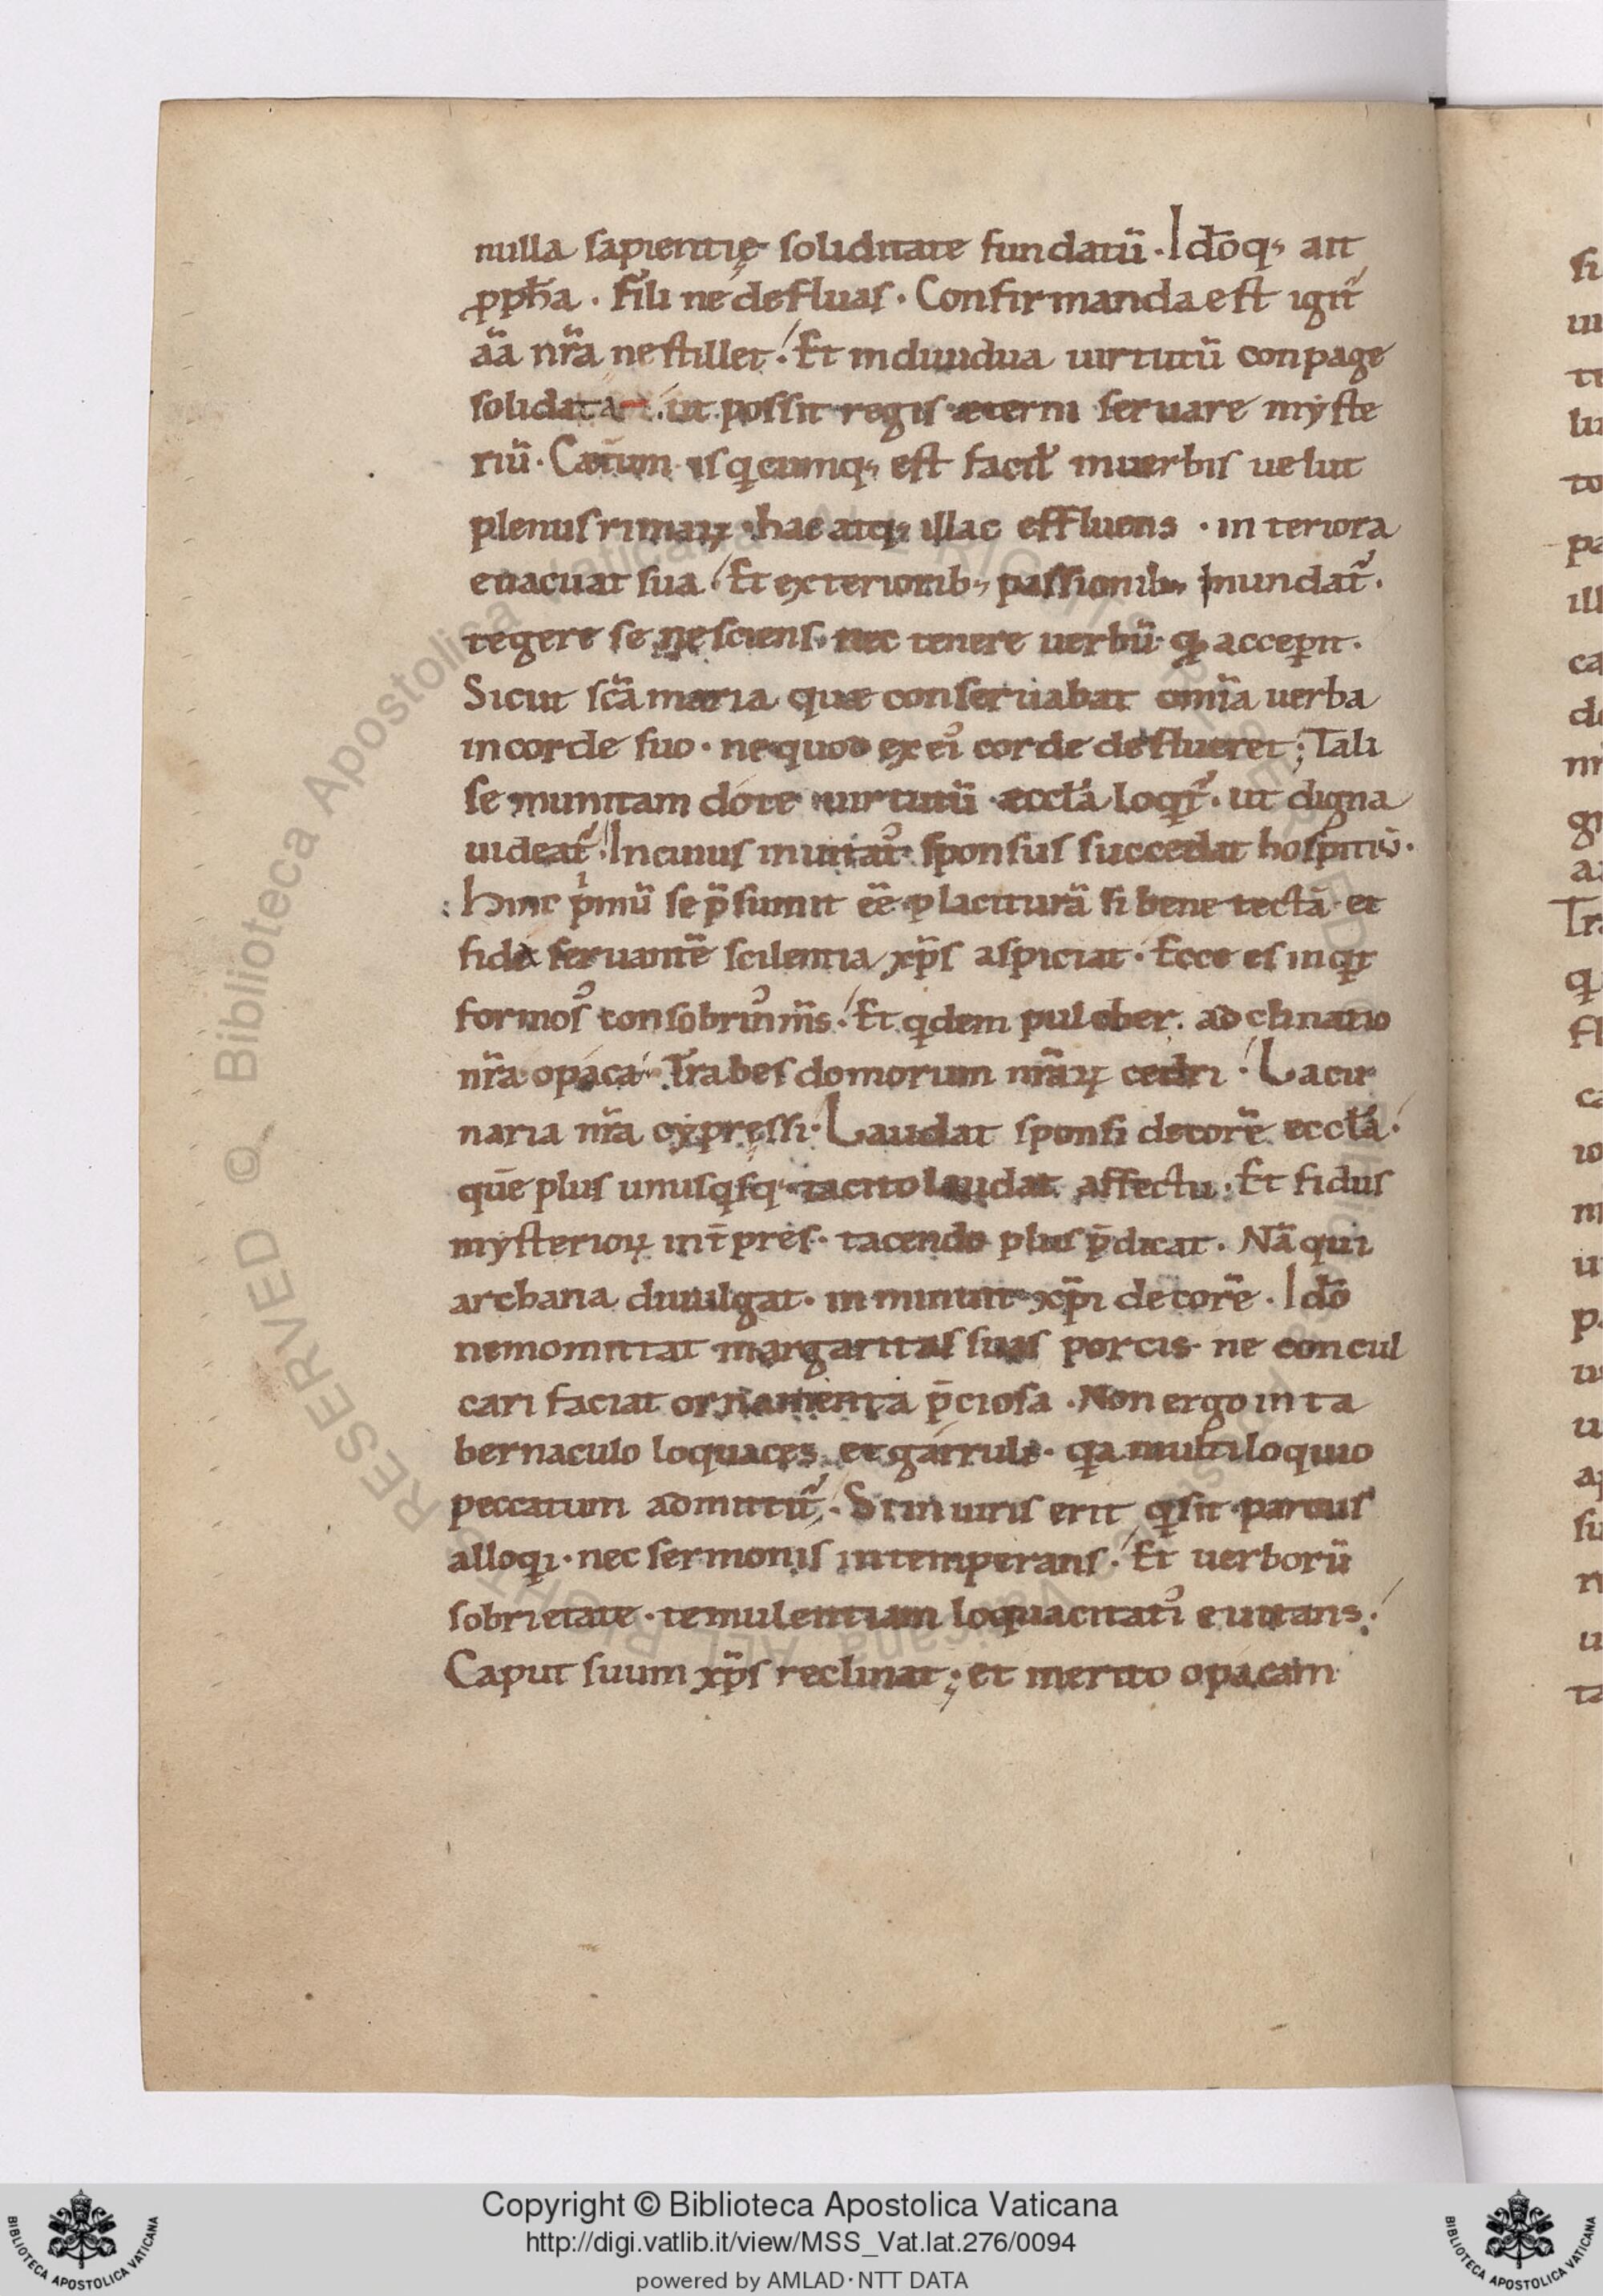 nulla sapientię soliditate fundatū. Idōq; ait
ꝓph̄a. Fili ne defluas. Confirmanda est igit᷑
āa nr̄a ne stillet. Et indiuidua uirtutū conpage
solidata. ut possit regis æterni seruare myste
riū. Cæt̄um is qͥcumq; est facil᷑ in uerbis uelut
plenus rimaꝝ hac atq; illac effluens. interiora
euacuat sua. Et exteriorib; passionib; inundat᷑.
tegere se nesciens. nec tenere uerbū qđ acceꝑit.
Sicut sc̄a maria quæ conseruabat om̄ia uerba
in corde suo. ne quod ex ei᷒ corde deflueret; Tali
se munitam dote uirtutū æccl̄a loqͥt᷑. ut digna
uideat᷑. In cuius inuitat᷒ sponsus succedat hospitiū.
Hinc pͥmū se p̄sumit ēē placiturā si bene tectā et
fida seruantē scilentia xp̄s aspiciat. Ecce es inqͥt
formos᷒ consobrin᷒ m̄s. Et qͥdem pulcher. adclinatio
nr̄a opaca. Trabes domorum nr̄aꝝ cedri. Lacu
naria nr̄a cypressi. Laudat sponsi decorē eccl̄a.
quē plus unusqͥsq; tacito laudat affectu. Et fidus
mysterioꝝ int̄pres. tacendo plus p̄dicat. Nā qui
archana diuulgat. inminuit xp̄i decorē. Idō
nemo mittat margaritas suas porcis. ne concul
cari faciat ornamenta p̄ciosa. Non ergo in ta
bernaculo loquaces et garruli. qͥa multiloquio
peccatum admittit᷑. S; in uiris erit qͥ sit parcus
alloqͥ. nec sermonis intemperans. Et uerborū
sobrietate. temulentiam loquacitati᷒ euitans.
Caput suum xp̄s reclinat; et merito opacam
Copyright © Biblioteca Apostolica Vaticana
http://digi.vatlib.it/view/MSS_Vat.lat.276/0094
powered by AMLAD·NTT DATA
BIBLIOTECA APOSTOLICA VATICANA
BIBLIOTECA APOSTOLICA VATICANA